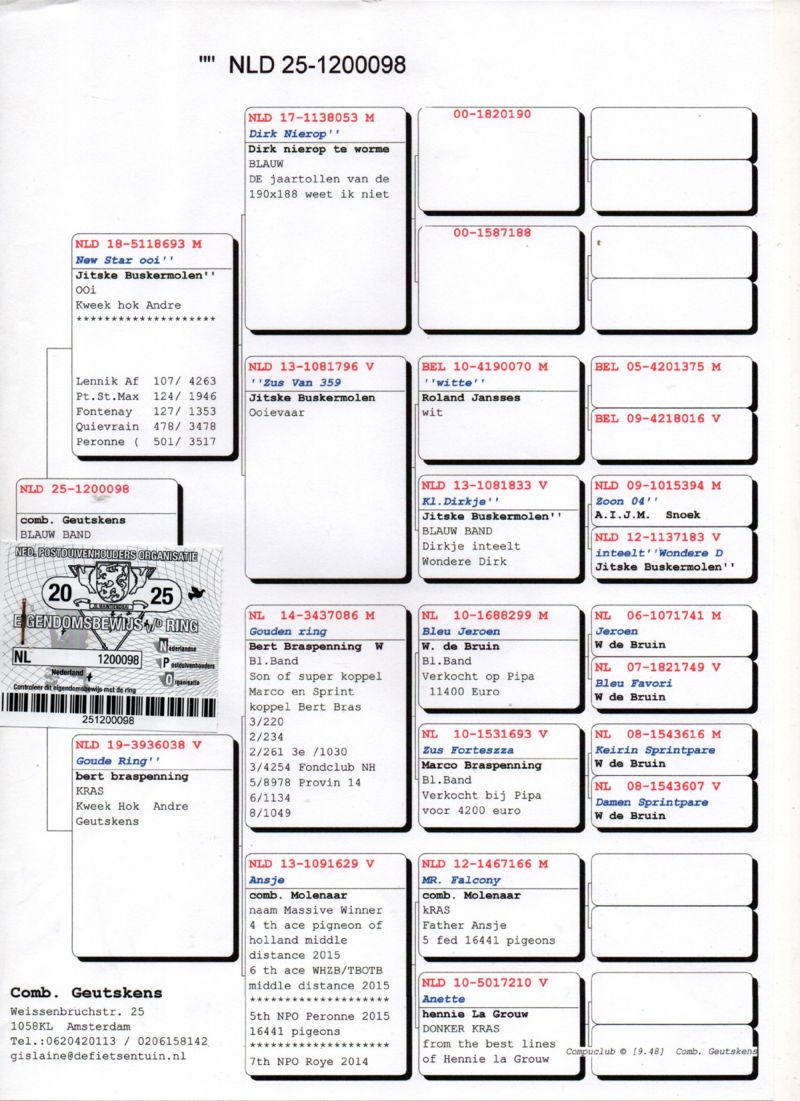 "" NLD 25-1200098
NLD 18-5118693 M
New Star ooi''
Jitske Buskermolen''
OOi
Kweek hok Andre
********************
Lennik Af 107/ 4263
Pt.St.Max 124/ 1946
Fontenay 127/ 1353
Quievrain 478/ 3478
Peronne ( 501/ 3517
NLD 25-1200098
comb. Geutskens
BLAUW BAND
NED. POSTDUIVENHOUDERS ORGANISATIE
20 25
EIGENDOMSBEWIJS V/D RING
NL 1200098
Nederland
Nederlandse
Postduivenhouders
Organisatie
Controleer dit eigendomsbewijs met de ring
251200098
NLD 19-3936038 V
Goude Ring''
bert braspenning
KRAS
Kweek Hok Andre
Geutskens
NLD 17-1138053 M
Dirk Nierop''
Dirk nierop te worme
BLAUW
DE jaartollen van de
190x188 weet ik niet
NLD 13-1081796 V
''Zus Van 359
Jitske Buskermolen
Ooievaar
NL 14-3437086 M
Gouden ring
Bert Braspenning W
Bl.Band
Son of super koppel
Marco en Sprint
koppel Bert Bras
3/220
2/234
2/261 3e /1030
3/4254 Fondclub NH
5/8978 Provin 14
6/1134
8/1049
NLD 13-1091629 V
Ansje
comb. Molenaar
naam Massive Winner
4 th ace pigneon of
holland middle
distance 2015
6 th ace WHZB/TBOTB
middle distance 2015
********************
5th NPO Peronne 2015
16441 pigeons
********************
7th NPO Roye 2014
00-1820190
00-1587188
BEL 10-4190070 M
''witte''
Roland Jansses
wit
NLD 13-1081833 V
Kl.Dirkje''
Jitske Buskermolen''
BLAUW BAND
Dirkje inteelt
Wondere Dirk
NL 10-1688299 M
Bleu Jeroen
W. de Bruin
Bl.Band
Verkocht op Pipa
11400 Euro
NL 10-1531693 V
Zus Forteszza
Marco Braspenning
Bl.Band
Verkocht bij Pipa
voor 4200 euro
NLD 12-1467166 M
MR. Falcony
comb. Molenaar
kRAS
Father Ansje
5 fed 16441 pigeons
NLD 10-5017210 V
Anette
hennie La Grouw
DONKER KRAS
from the best lines
of Hennie la Grouw
BEL 05-4201375 M
BEL 09-4218016 V
NLD 09-1015394 M
Zoon 04''
A.I.J.M. Snoek
NLD 12-1137183 V
inteelt''Wondere D
Jitske Buskermolen''
NL 06-1071741 M
Jeroen
W de Bruin
NL 07-1821749 V
Bleu Favori
W de Bruin
NL 08-1543616 M
Keirin Sprintpare
W de Bruin
NL 08-1543607 V
Damen Sprintpare
W de Bruin
Comb. Geutskens
Weissenbruchstr. 25
1058KL Amsterdam
Tel.:0620420113 / 0206158142
gislaine@defietsentuin.nl
Compuclub © [9.48] Comb. Geutskens